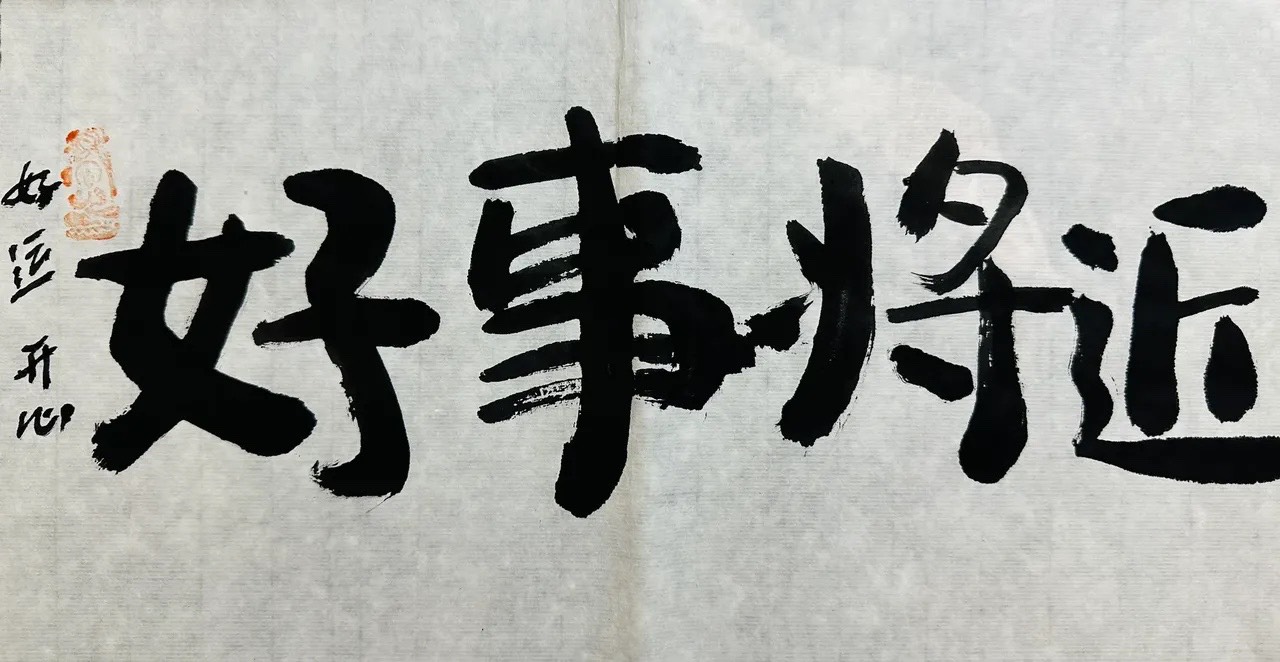 好事将近
好运开心